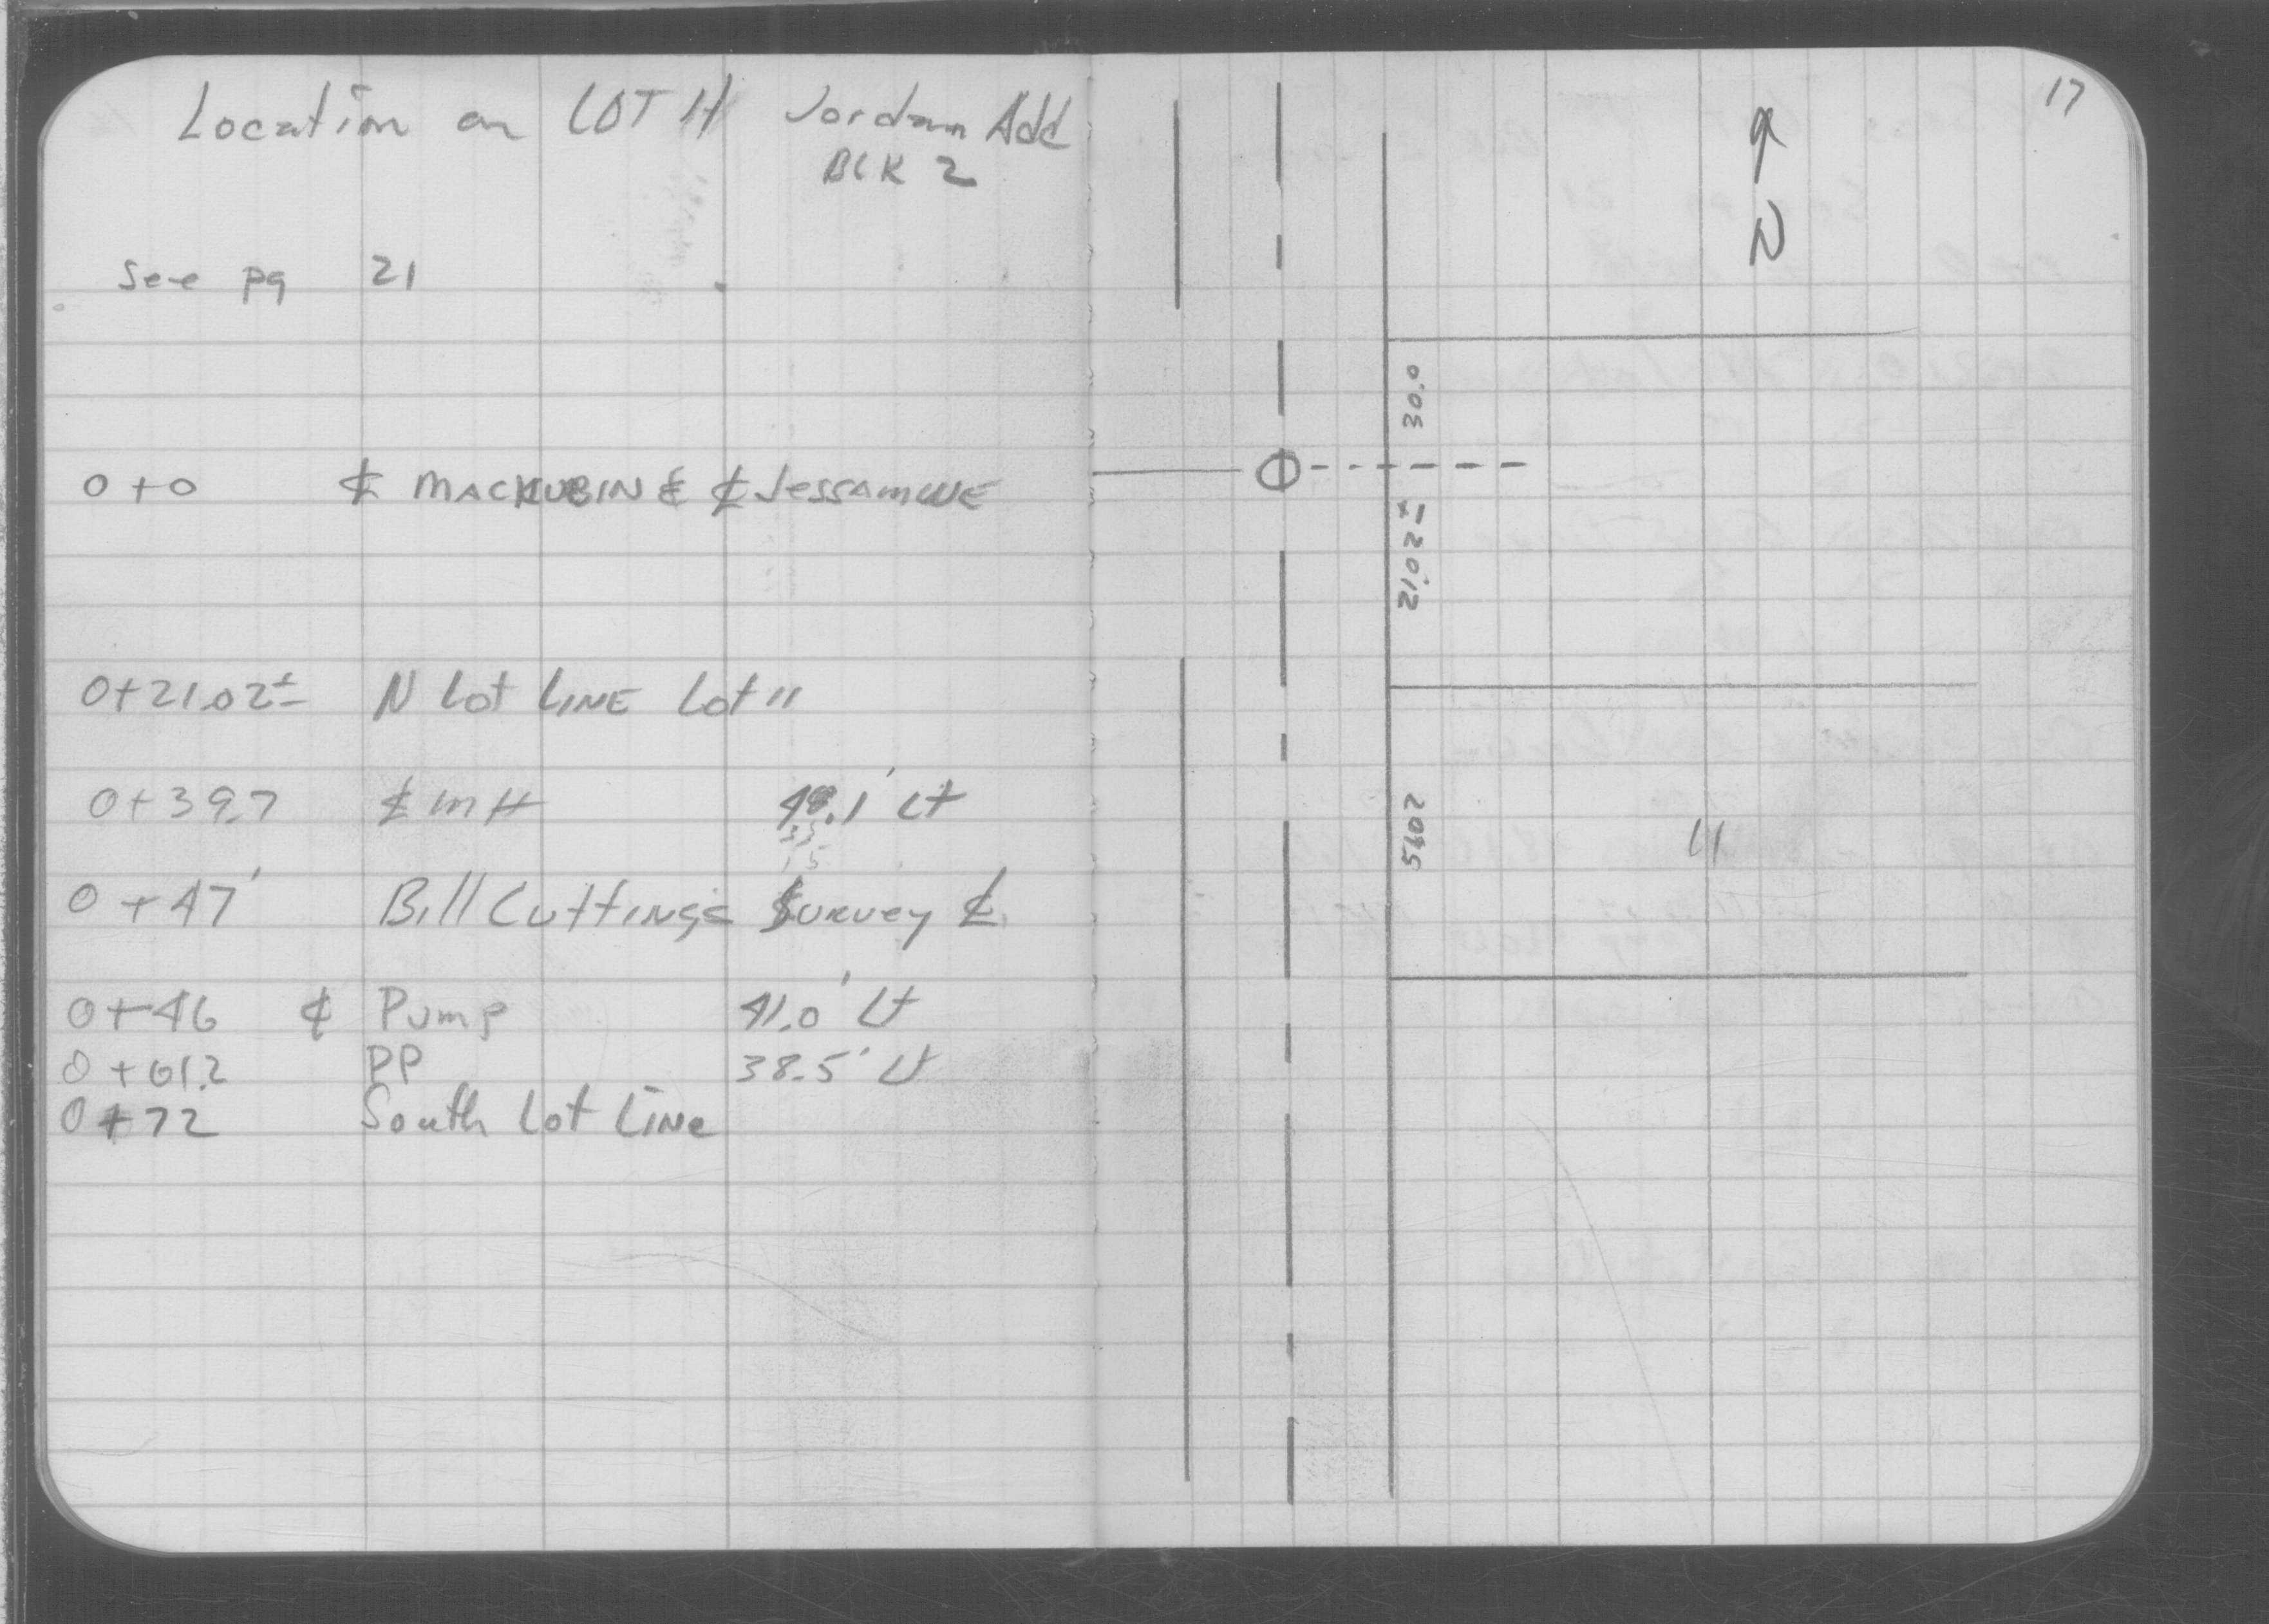 Location on LOT 11 Jordan Add
BLK 2
See pg 21
0+0 ℄ MACKUBIN & ℄ Jessamine
0+21.02± N Lot LINE Lot 11
0+39.7 ℄ MH 48.1' Lt
33
15
0+47' Bill Cuttings Survey ℄
0+46 ℄ Pump 41.0' Lt
0+61.2 PP 38.5' Lt
0+72 South Lot Line
17
N
30.0
21.02±
51.02
11